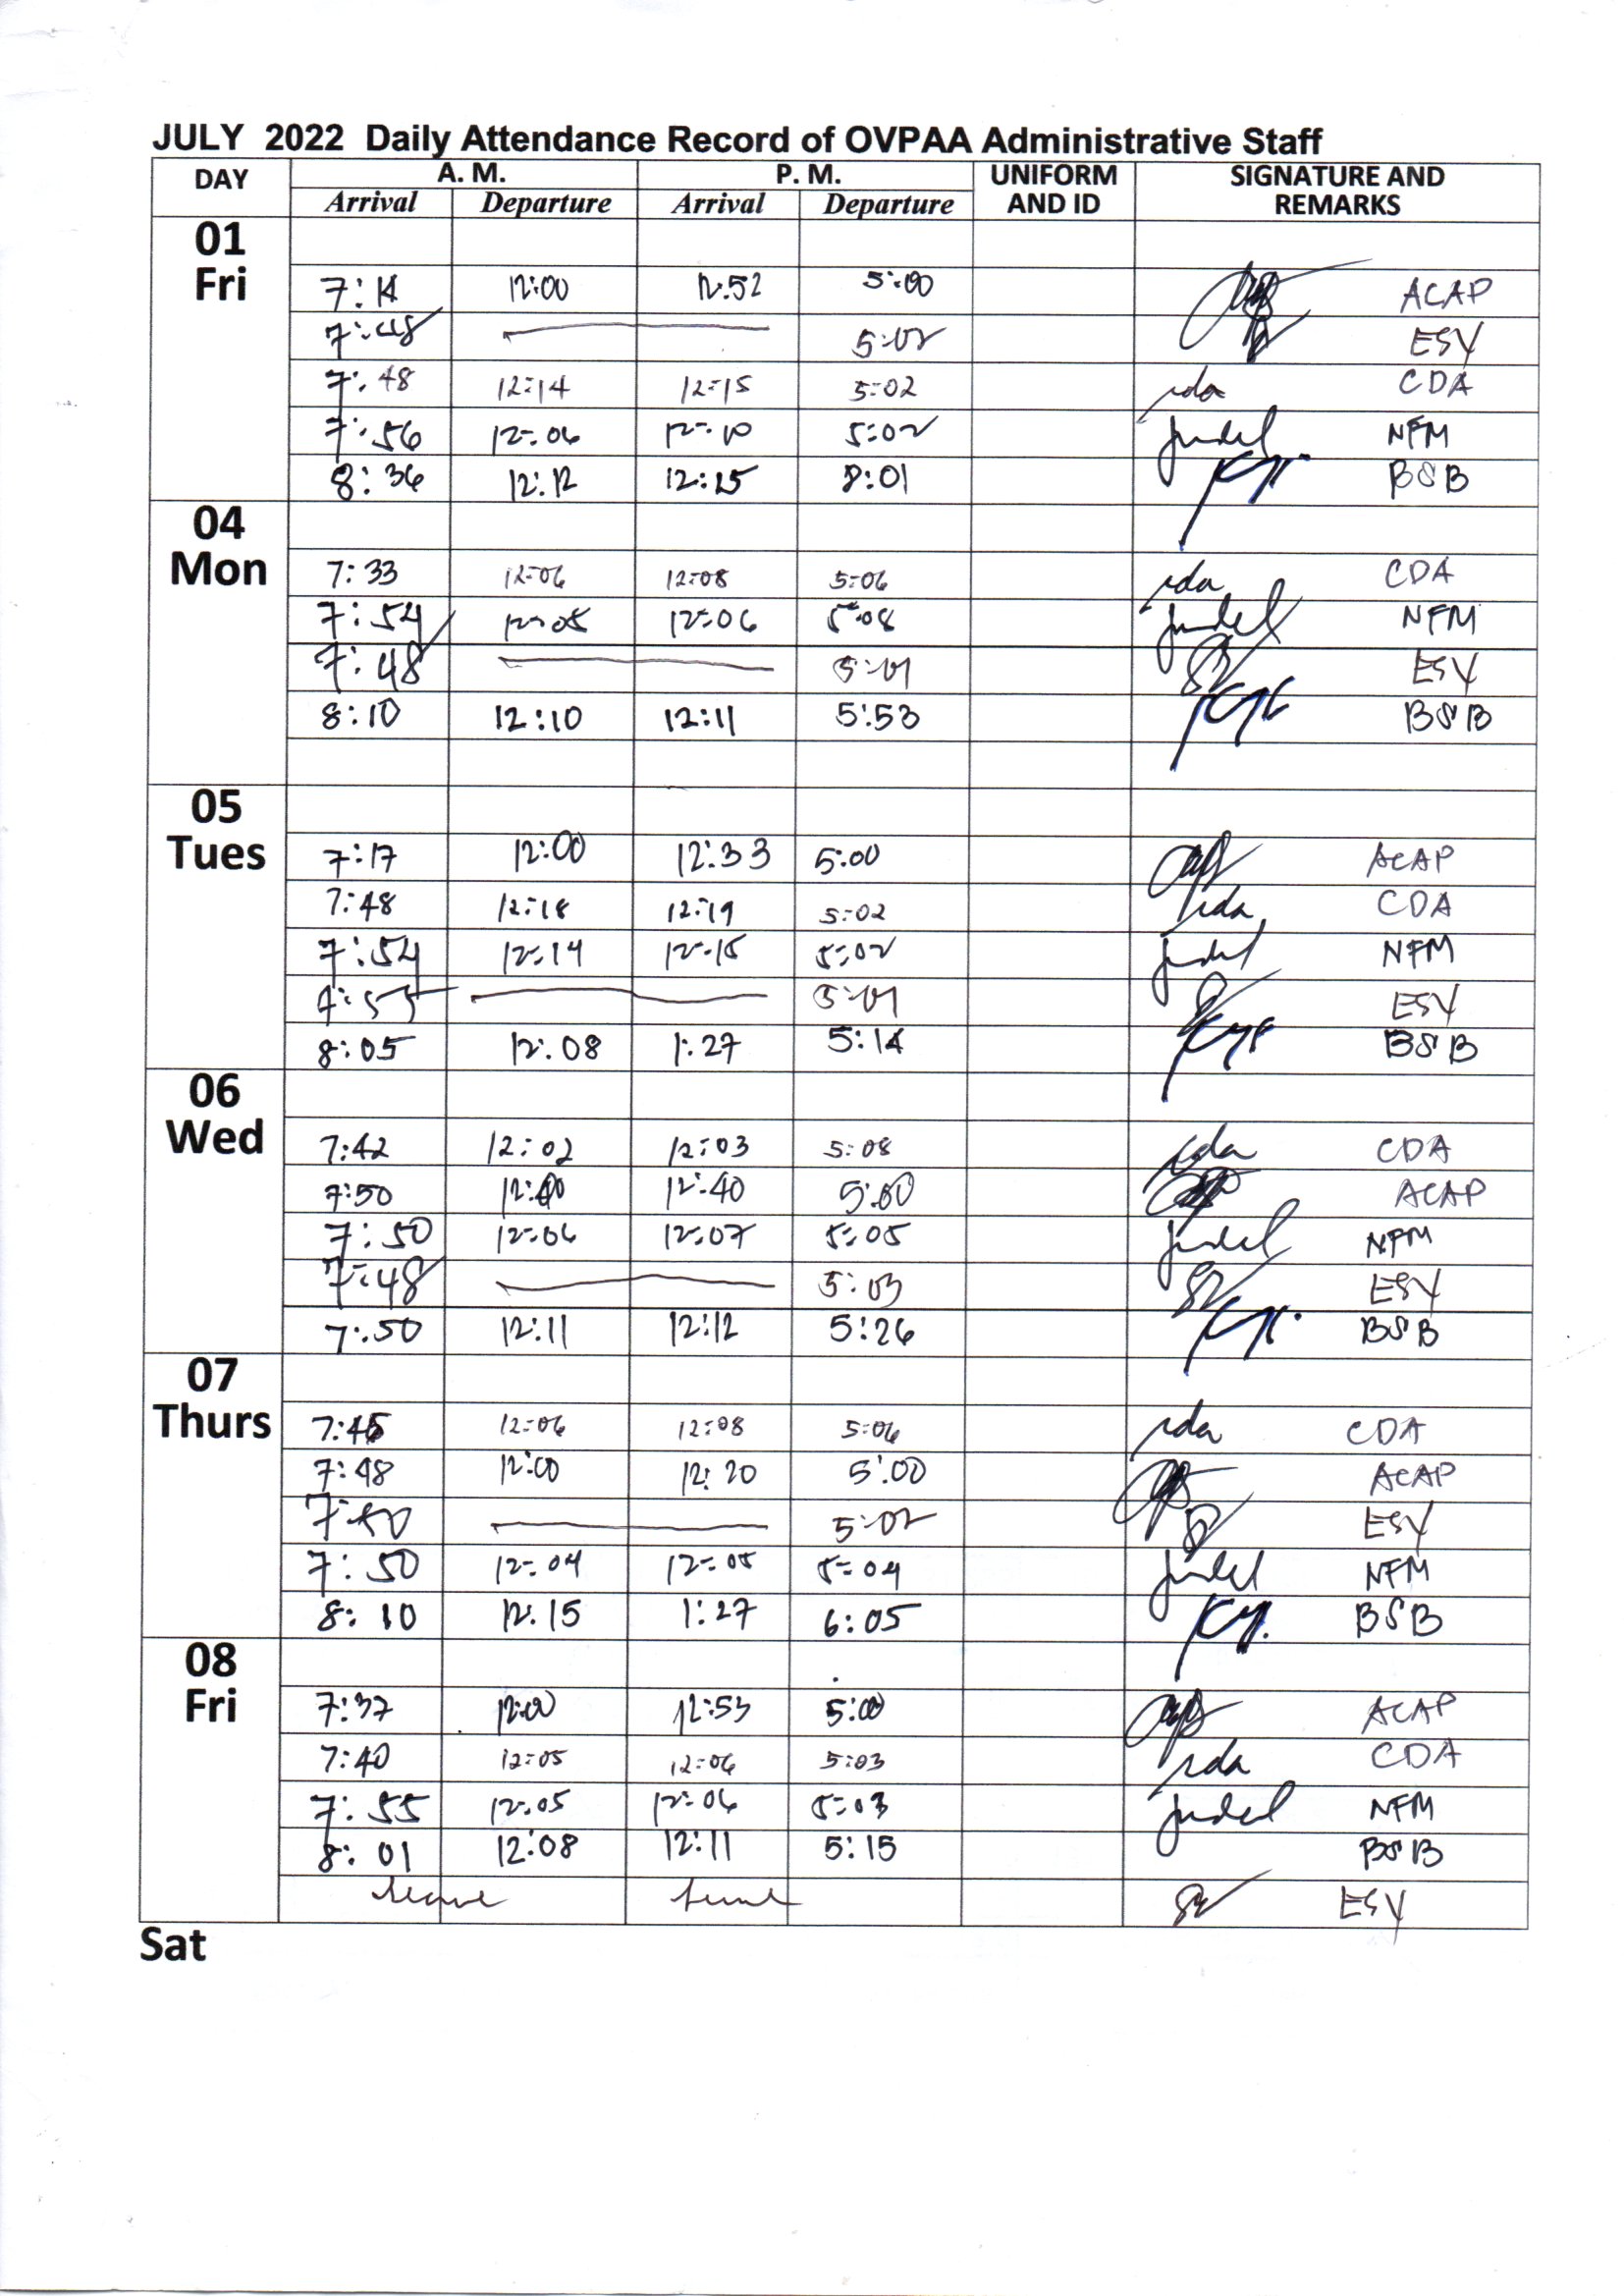 JULY 2022 Daily Attendance Record of OVPAA Administrative Staff
DAY A. M. P. M. UNIFORM AND ID SIGNATURE AND REMARKS
Arrival Departure Arrival Departure
01 Fri
7:14 12:00 12:52 5:00 ACAP
7:48 5:02 ESY
7:48 12:14 12:15 5:02 cda CDA
7:56 12:06 12:10 5:02 NFM
8:36 12:12 12:15 8:01 BSB
04 Mon
7:33 12:06 12:08 5:06 cda CDA
7:54 12:05 12:06 5:08 NFM
7:48 5:01 ESY
8:10 12:10 12:11 5:53 BSB
05 Tues
7:17 12:00 12:33 5:00 ACAP
7:48 12:18 12:19 5:02 cda CDA
7:54 12:14 12:15 5:02 NFM
7:55 5:01 ESY
8:05 12:08 1:27 5:14 BSB
06 Wed
7:42 12:02 12:03 5:08 cda CDA
7:50 12:40 5:00 ACAP
7:50 12:06 12:07 5:05 NFM
7:48 5:03 ESY
7:50 12:11 12:12 5:26 BSB
07 Thurs
7:45 12:06 12:08 5:06 cda CDA
7:48 12:00 12:20 5:00 ACAP
5:02 ESY
7:50 12:04 12:05 5:04 NFM
8:10 12:15 1:27 6:05 BSB
08 Fri
7:37 12:00 12:53 5:00 ACAP
7:40 12:05 12:06 5:03 cda CDA
7:55 12:05 12:06 5:03 NFM
8:01 12:08 12:11 5:15 BSB
leave ESY
Sat